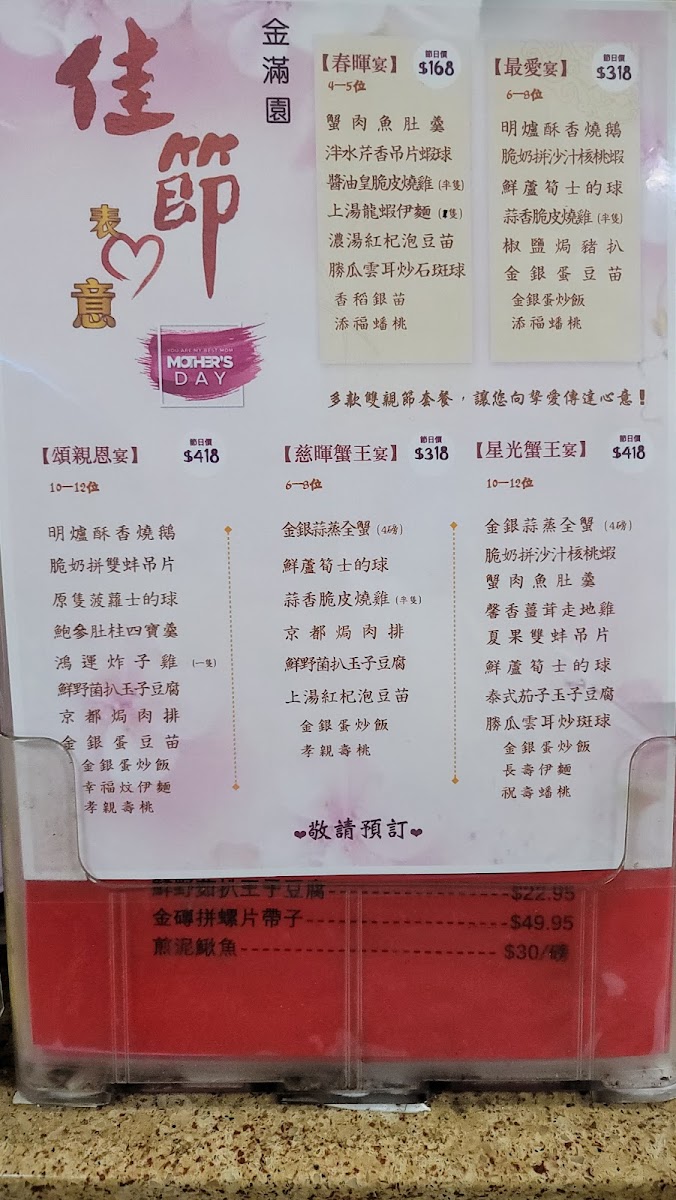 金滿園
佳節
表意
YOU ARE MY BEST MOM
MOTHER'S
DAY
【春暉宴】
節日價
$168
4—5位
蟹肉魚肚羹
泮水芹香吊片蝦球
醬油皇脆皮燒雞(半隻)
上湯龍蝦伊麵(1隻)
濃湯紅杞泡豆苗
勝瓜雲耳炒石斑球
香稻銀苗
添福蟠桃
【最愛宴】
節日價
$318
6—8位
明爐酥香燒鵝
脆奶拼沙汁核桃蝦
鮮蘆筍士的球
蒜香脆皮燒雞(半隻)
椒鹽焗豬扒
金銀蛋豆苗
金銀蛋炒飯
添福蟠桃
多款雙親節套餐，讓您向摯愛傳達心意!
【頌親恩宴】
節日價
$418
10—12位
明爐酥香燒鵝
脆奶拼雙蚌吊片
原隻菠蘿士的球
鮑參肚柱四寶羹
鴻運炸子雞(一隻)
鮮野菌扒玉子豆腐
京都焗肉排
金銀蛋豆苗
金銀蛋炒飯
幸福炆伊麵
孝親壽桃
【慈暉蟹王宴】
節日價
$318
6—8位
金銀蒜蒸全蟹(4磅)
鮮蘆筍士的球
蒜香脆皮燒雞(半隻)
京都焗肉排
鮮野菌扒玉子豆腐
上湯紅杞泡豆苗
金銀蛋炒飯
孝親壽桃
【星光蟹王宴】
節日價
$418
10—12位
金銀蒜蒸全蟹(4磅)
脆奶拼沙汁核桃蝦
蟹肉魚肚羹
馨香薑茸走地雞
夏果雙蚌吊片
鮮蘆筍士的球
泰式茄子玉子豆腐
勝瓜雲耳炒斑球
金銀蛋炒飯
長壽伊麵
祝壽蟠桃
❤敬請預訂❤
鮮野茹扒玉子豆腐--------------------$22.95
金磚拼螺片帶子----------------------$49.95
煎泥鰍魚---------------------------- $30/磅